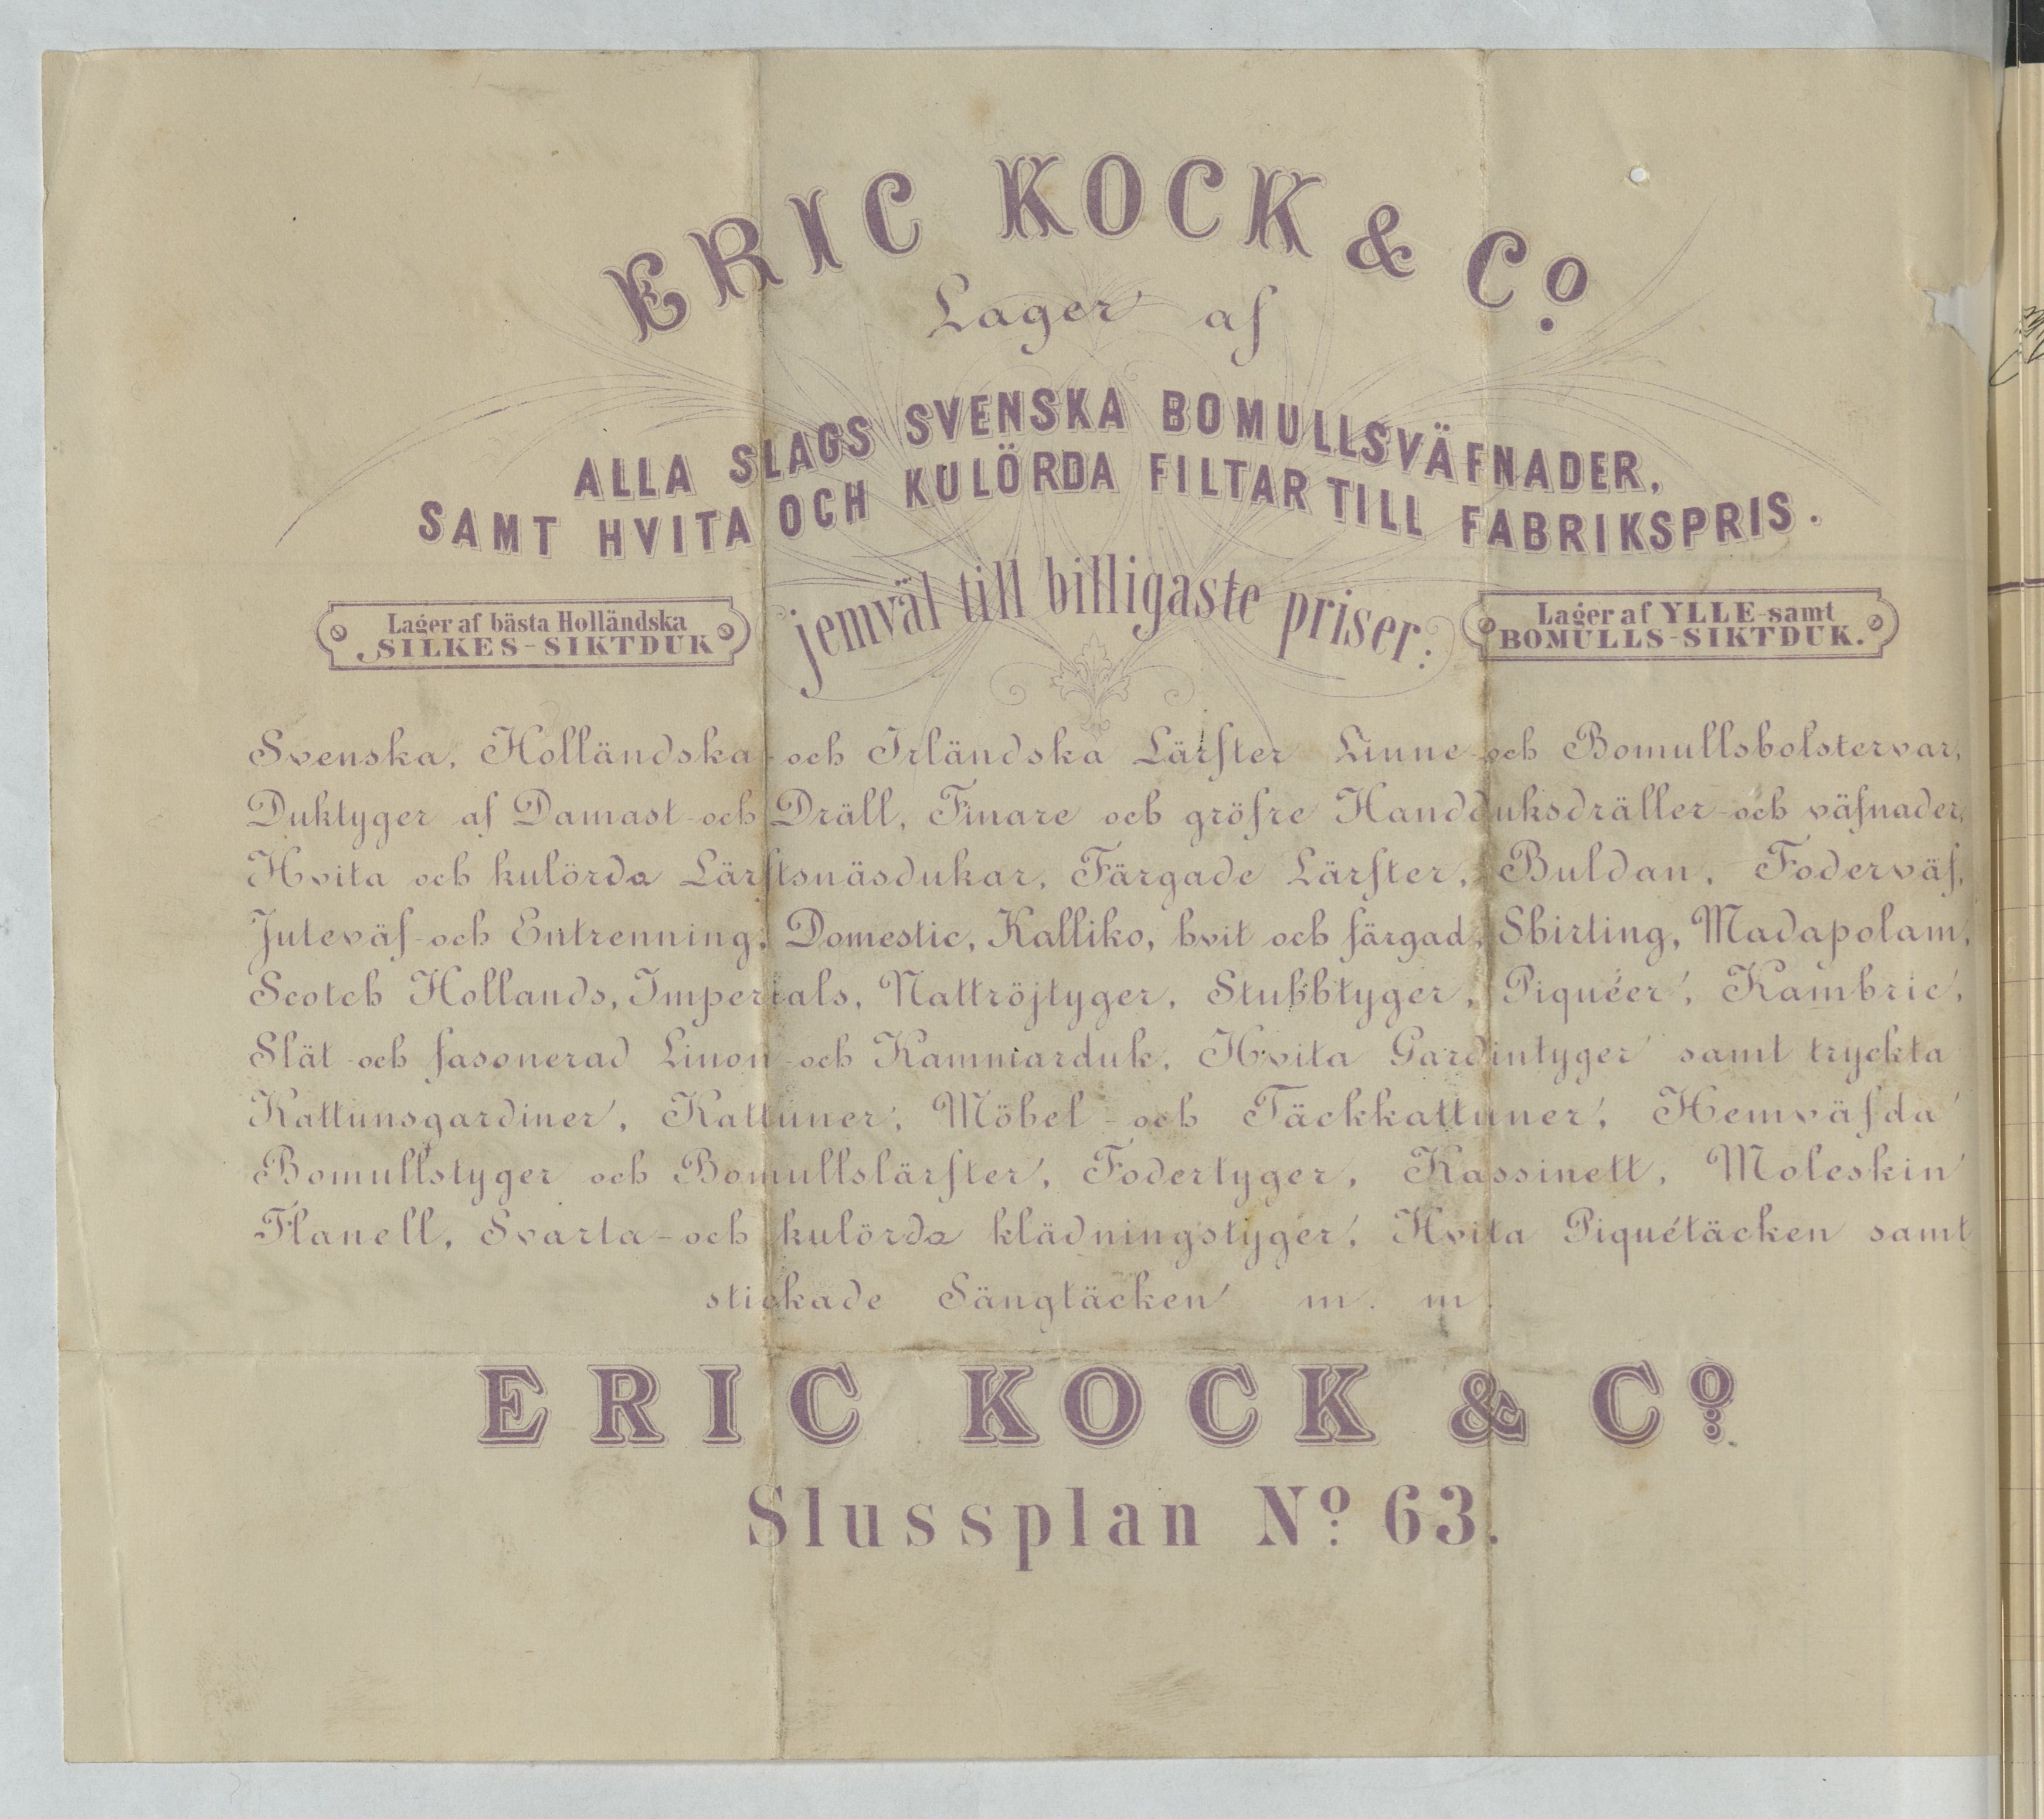 ERIC KOCK & Cº
Lager af
ALLA SLAGS SVENSKA BOMULLSVÄFNADER,
SAMT HVITA OCH KULÖRDA FILTAR TILL FABRIKSPRIS.
jemväl till billigaste priser:
Lager af bästa Holländska
SILKES-SIKTDUK
Lager af YLLE-samt
BOMULLS-SIKTDUK.
Svenska, Holländska-och Irländska Lärfter Linne-och Bomullsbolstervar,
Duktyger af Damast-och Dräll, Finare och gröfre Handduksdräller-och väfnader,
Hvita och kulörda Lärftsnäsdukar, Färgade Lärfter, Buldan, Foderväf,
Juteväf-och Entrenning, Domestic, Kalliko, hvit och färgad, Shirting, Madapolam,
Scotch Hollands, Imperials, Nattröjtyger, Stubbtyger, Piquéer, Kambric,
Slät-och fasonerad Linon-och Kammarduk, Hvita Gardintyger samt tryckta
Kattunsgardiner, Kattuner, Möbel-och Täckkattuner, Hemväfda
Bomullstyger och Bomullslärfter, Fodertyger, Kassinett, Moleskin
Flanell, Svarta-och kulörda klädningstyger, Hvita Piquétäcken samt
stickade Sängtäcken m. m.
ERIC KOCK & Cº
Slussplan Nº 63.